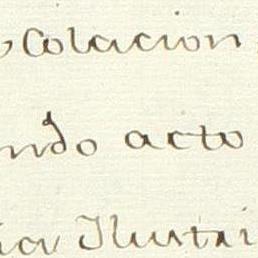 Colacion
ndo acto
Ilustri